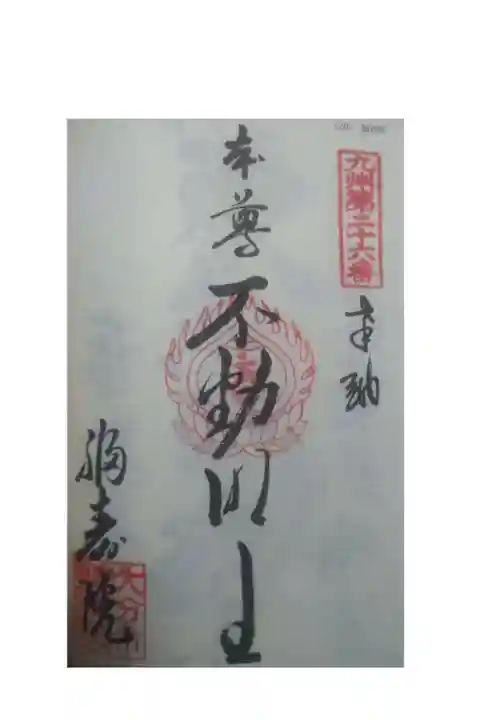 九州第二十六番
奉納
本尊
不動明王
福寿院
大分市